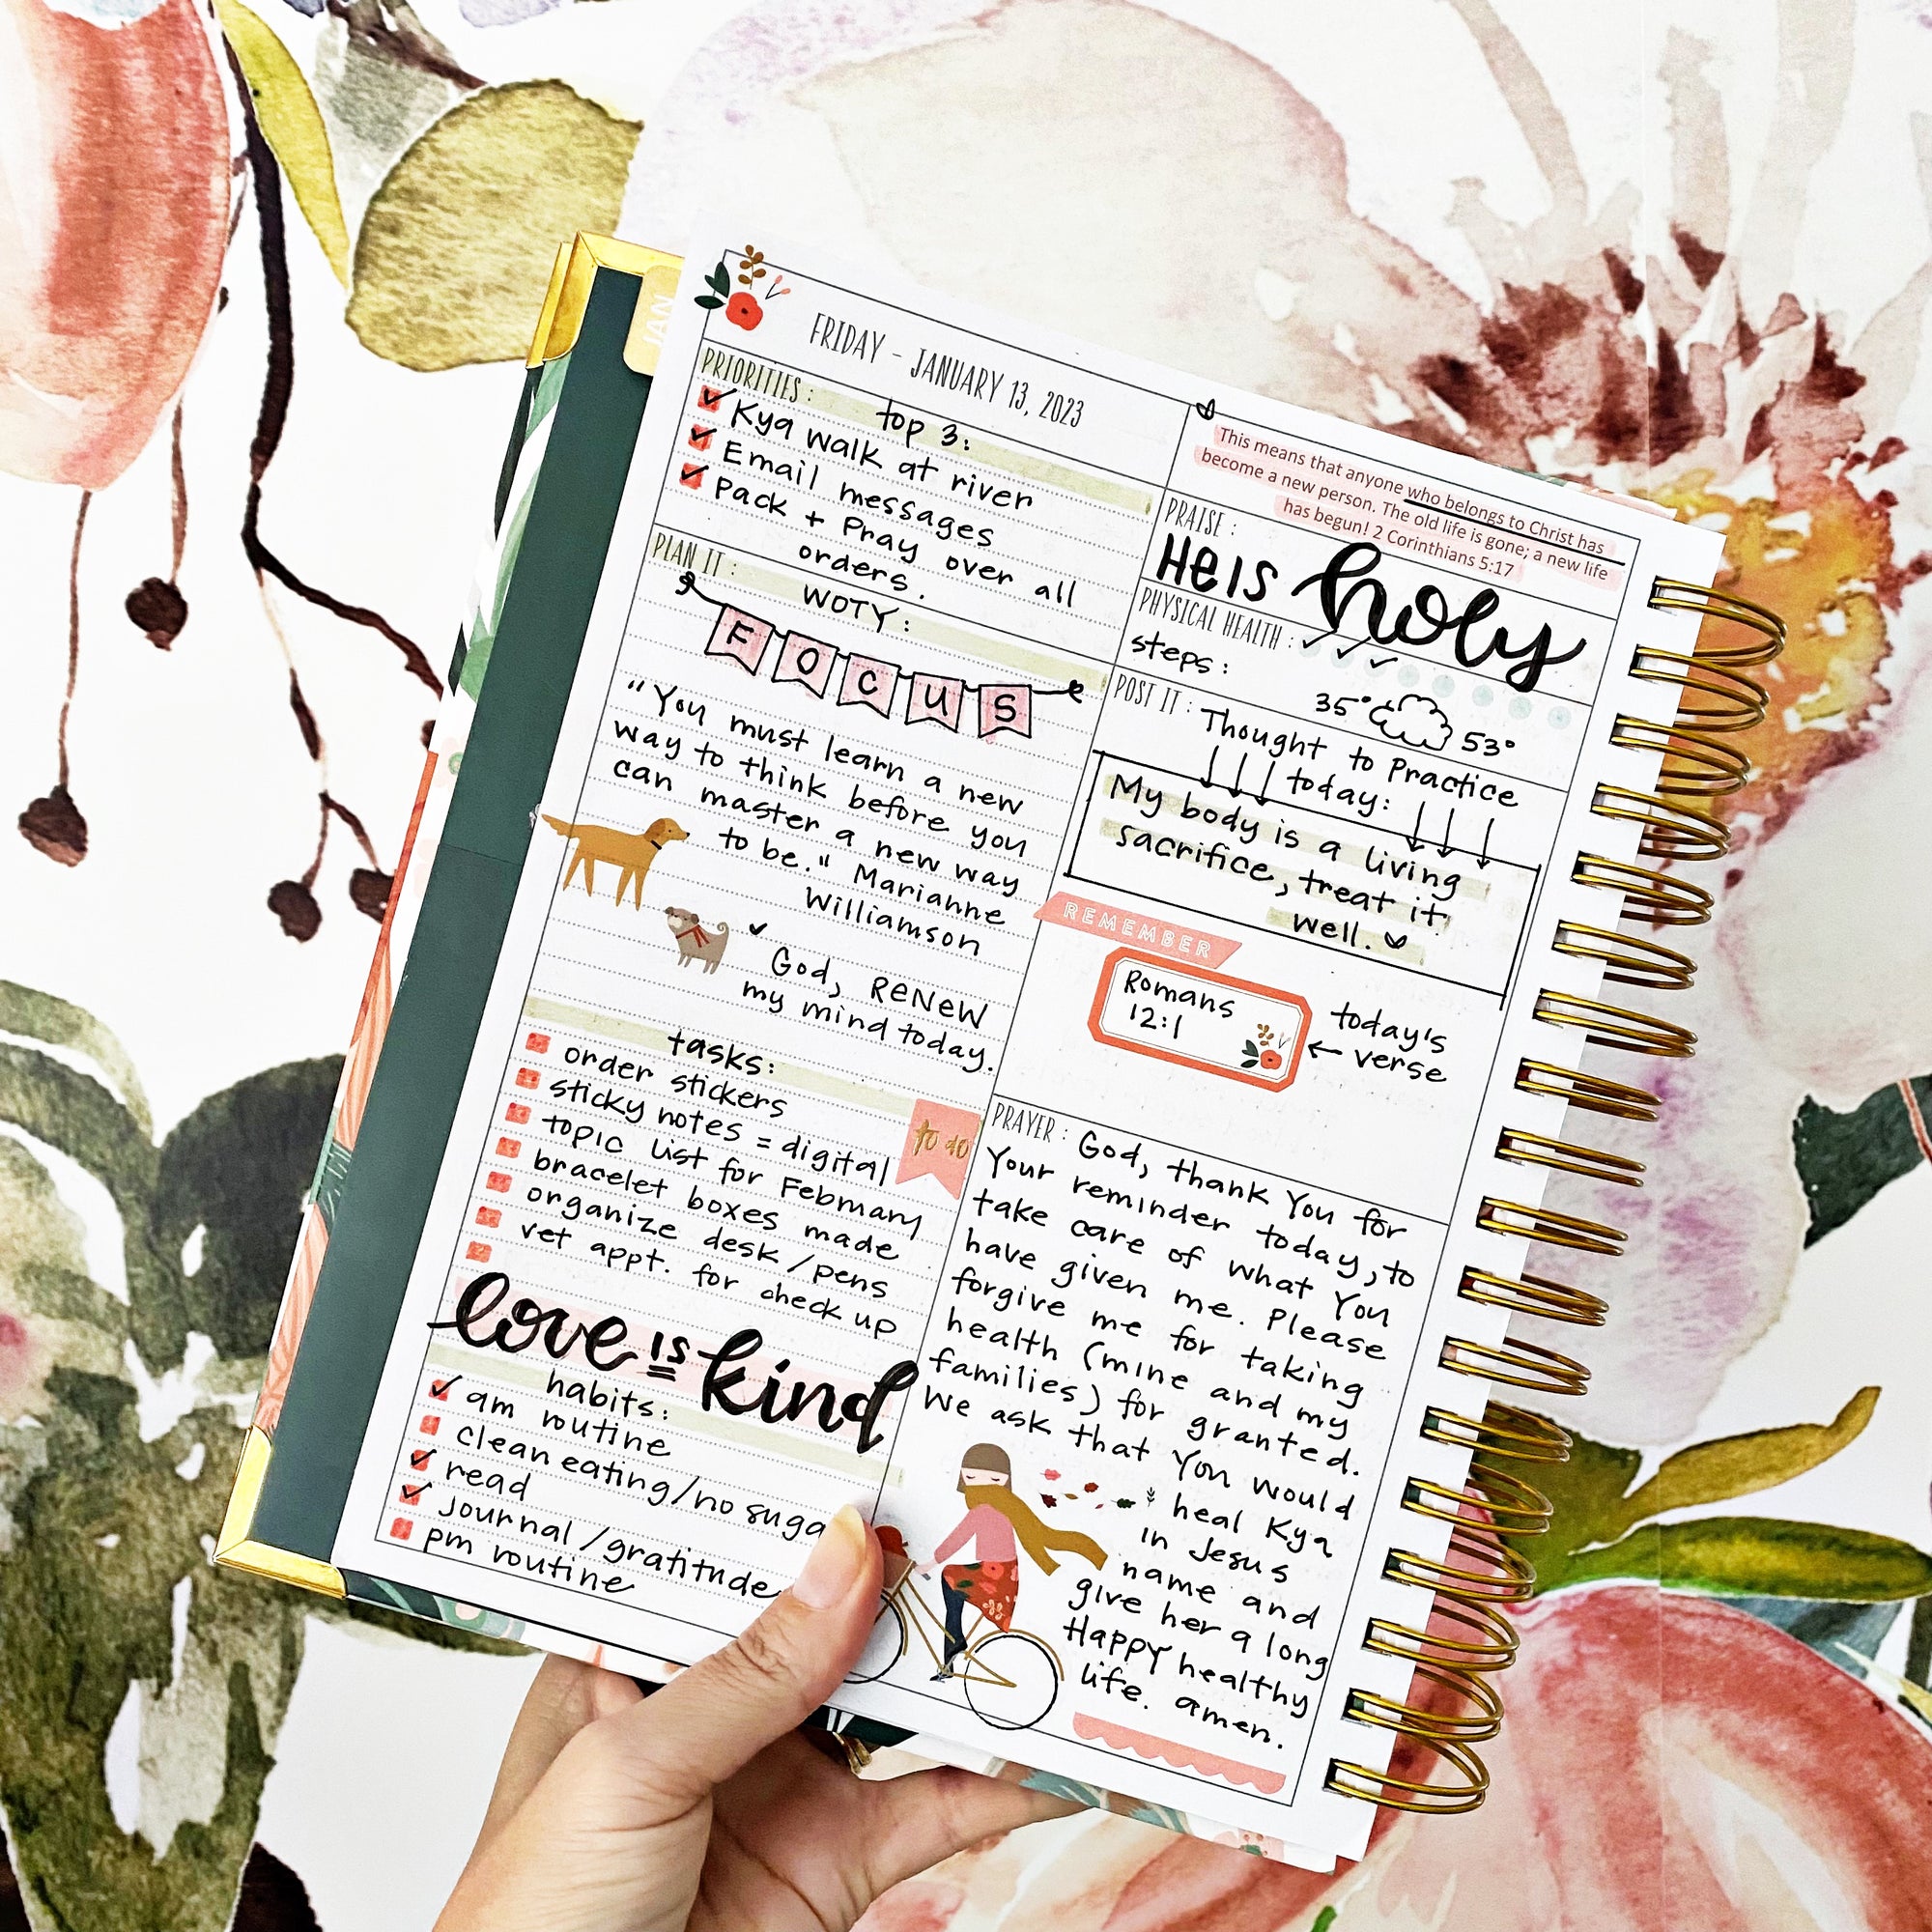 JAN
FRIDAY - JANUARY 13, 2023
PRIORITIES:
top 3:
Kya walk at river
Email messages
Pack + Pray over all
orders.
PLAN IT:
WOTY:
FOCUS
"You must learn a new
way to think before you
can master a new way
to be." Marianne
Williamson
God, RENEW
my mind today.
tasks:
order stickers
sticky notes = digital
topic list for February
bracelet boxes made
organize desk/pens
vet appt. for check up
to do
love is kind
habits:
am routine
clean eating/no suga
read
journal/gratitude
pm routine
This means that anyone who belongs to Christ has
become a new person. The old life is gone; a new life
has begun! 2 Corinthians 5:17
PRAISE:
He is holy
PHYSICAL HEALTH:
steps:
35° 53°
POST IT:
Thought to Practice
today:
My body is a living
sacrifice, treat it
well.
REMEMBER
Romans
12:1
today's
verse
PRAYER: God, thank You for
Your reminder today, to
take care of what You
have given me. Please
forgive me for taking
health (mine and my
families) for granted.
We ask that You would
heal Kya
in Jesus
name and
give her a long
Happy healthy
life. amen.